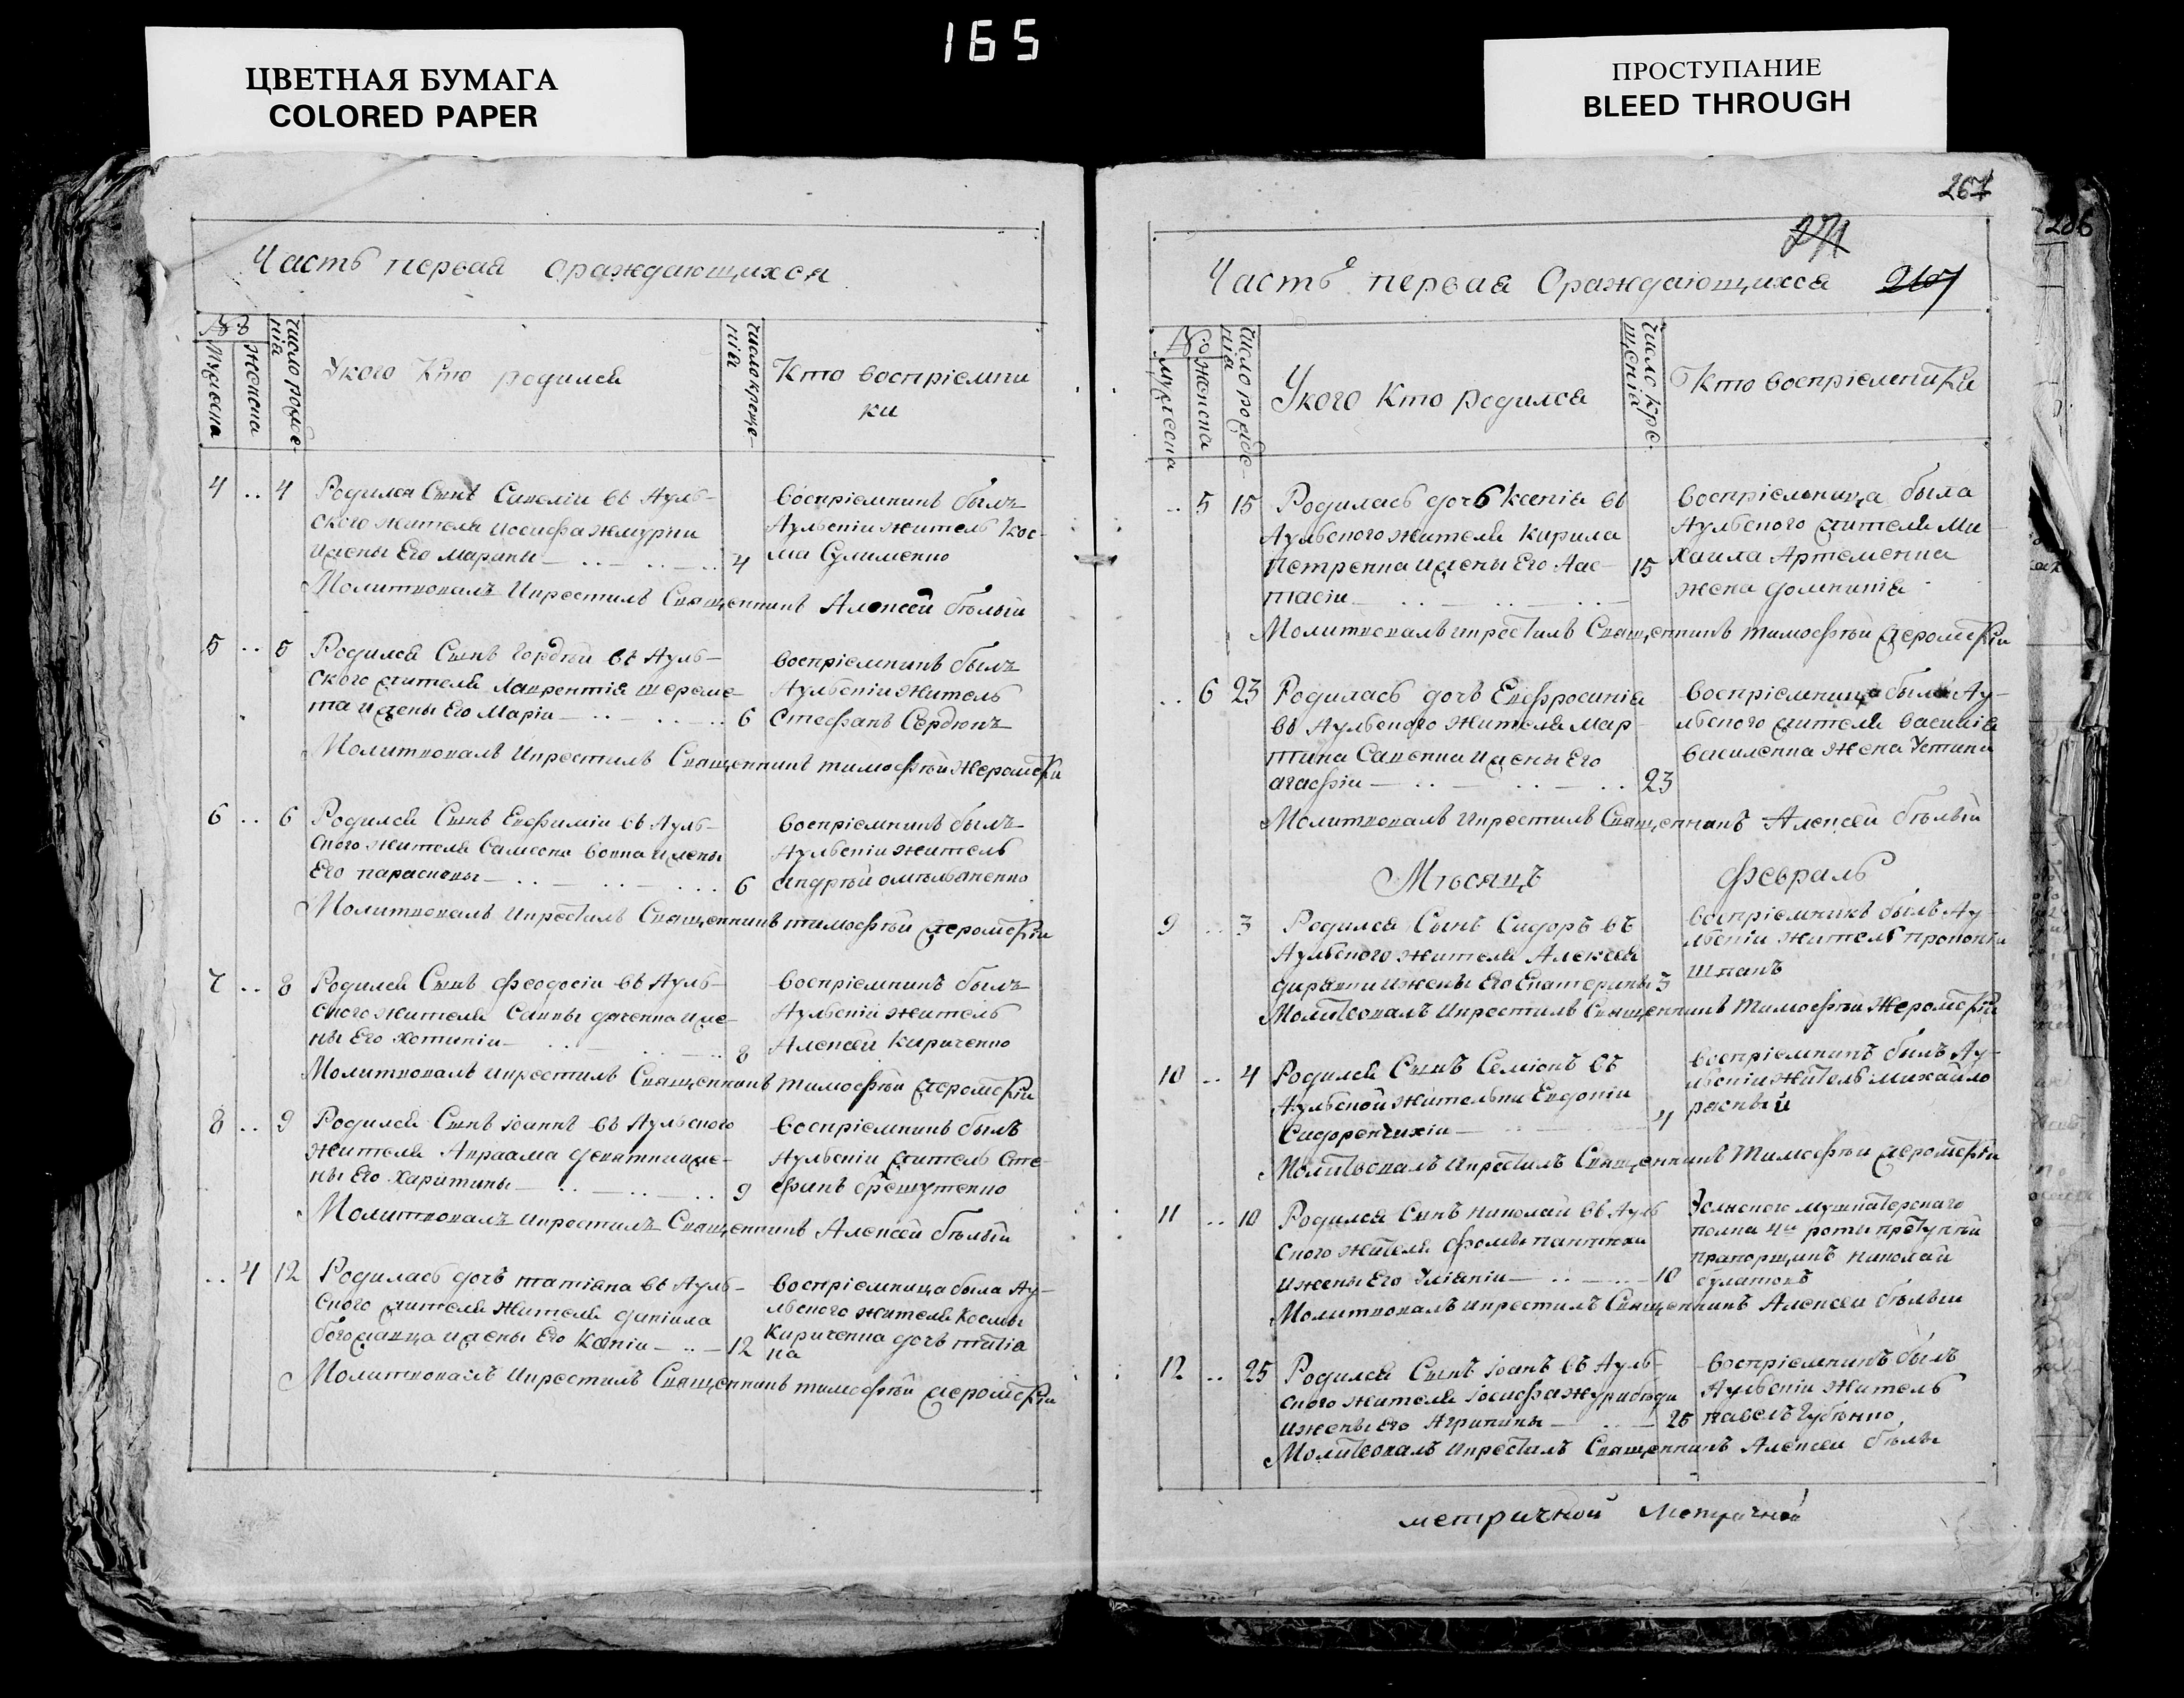 165
ЦВЕТНАЯ БУМАГА
COLORED PAPER
ПРОСТУПАНИЕ
BLEED THROUGH
Часть первая ораждающихся
№ъ
мужеска
женска
число рожде-
нїа
Укого Кто родился
число креще-
нїа
Кто воспрїемни
ки
4 .. 4 Родился Сынъ Савелїи въ Ауль-
ского жителя иосифа жмурки
ижены Его Марѳы 4
воспрїемникъ былъ
Аульскїи житель Кос-
ма Сулименко
Молитвовалъ Икрестилъ Священникъ Алексей бѣлый
5 .. 5 Родился Сынъ Гордѣй въ Ауль-
ского жителя Лаврентїя шереме
та ижены Его Марїи 6
воспрїемникъ былъ
Аульскїи житель
Стефанъ Сердюкъ
Молитвовалъ Икрестилъ Священникъ тимофѣй Жеромски
6 .. 6 Родился Сынъ Евфимїи въ Ауль-
ского жителя Самсона вовка ижены
Его параскевы 6
воспрїемникъ былъ
Аульскїи житель
андрѣй омельяненко
Молитвовалъ Икрестилъ Священникъ тимофѣй жеромски
7 .. 8 Родился Сынъ феодосїи въ Ауль-
ского жителя Саввы дяченка иже-
ны Его хотинїи 8
воспрїемникъ былъ
Аульскїи житель
Алексей Кириченко
Молитвовалъ икрестилъ Священникъ тимофѣй жеромски
8 .. 9 Родился Сынъ іоаннъ въ Аульского
жителя Авраама девяткииже-
ны Его Харитины 9
воспрїемникъ былъ
Аульскїи житель Сте-
фанъ брешутенко
Молитвовалъ икрестилъ Священникъ Алексей бѣлый
.. 4 12 Родилась дочь татїана въ Ауль-
ского жителя жителя данїила
богославца ижены Его Ксенїи 12
воспрїемница была Ау-
льского жителя Космы
Кириченка дочь татїа
на
Молитвовалъ Икрестилъ Священникъ тимофѣй жеромски
267
271
267
Часть первая Ораждающихся
№ъ
мужеска
женска
число рожде-
нїа
Укого Кто родился
число кре-
щенїа
Кто воспрїемники
.. 5 15 Родилась дочь Ксенїа въ
Аульского жителя Кирила
Петренка ижены Его Аас-
тасїи 15
воспрїемница была
Аульского жителя Ми
хаила Артеменка
жена домникїа
Молитвовалъ икрестилъ Священникъ тимофѣй жеромски
.. 6 23 Родилась дочь Евфросинїа
въ Аульского жителя Мар
тина Савенка ижены Его
агафїи 23
воспрїемница была Ау-
льского жителя василїа
василенка жена Устина
Молитвовалъ Икрестилъ Священникъ Алексей бѣлый
Мѣсяцъ февраль
9 .. 3 Родился Сынъ Сидоръ въ
Аульского жителя Алексея
ижены Его Екатерины 3
воспрїемникъ былъ Ау-
льскїи житель
шпакъ
Молитвовалъ Икрестилъ Священникъ Тимофѣй Жеромски
10 .. 4 Родился Сынъ Семїонъ въ
Аульской жительки Евдокїи
Сидоренчихїи 4
воспрїемникъ былъ Ау-
льскїи житель михайло
распый
Молитвовалъ Икрестилъ Священникъ Тимофѣи жеромски
11 .. 10 Родился Сынъ николай въ Ауль
ского жителя фомы
ижены Его Улїанїи 10
мушкатерскаго
полка 4й роты
прапорщикъ николай
булатовъ
Молитвовалъ икрестилъ Священникъ Алексеи бѣлыи
12 .. 25 Родился Сынъ іоанъ въ Ауль-
ского жителя іосифа журибѣди
ижены Его Агрипины 25
воспрїемникъ былъ
Аульскїи житель
павелъ губѣнко
Молитвовалъ икрестилъ Священникъ Алексеи бѣлы
метричной метричной
206